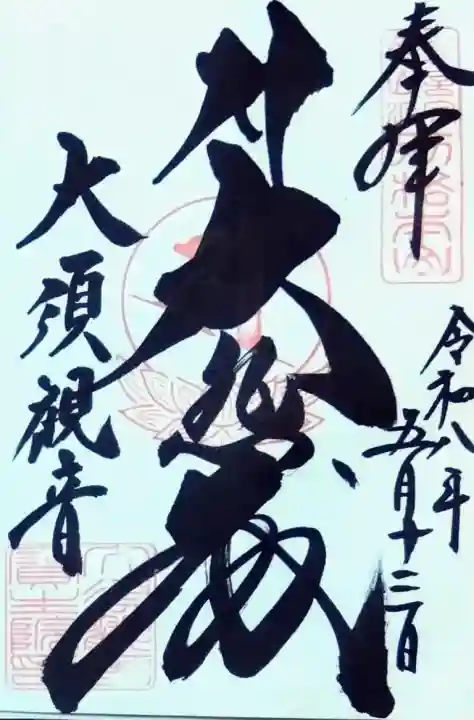 奉拝
令和八年
五月十三日
大悲殿
大須観音